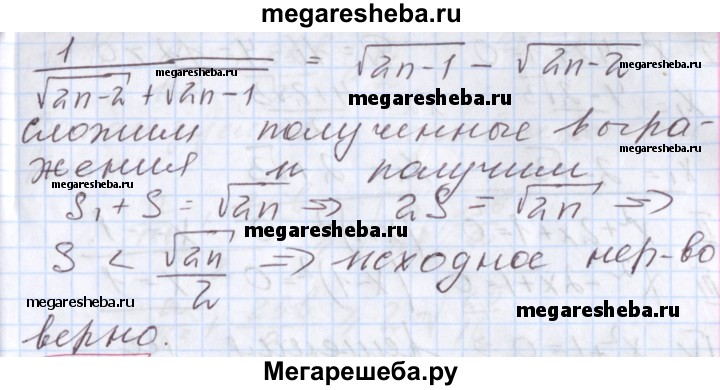 megaresheba.ru
1/(√2n-2 + √2n-1) = √2n-1 - √2n-2.
megaresheba.ru megaresheba.ru
megaresheba.ru
megaresheba.ru
сложим полученные выра-
megaresheba.ru
жения и получим
megaresheba.ru
S₁ + S = √2n => 2S = √2n =>
megaresheba.ru
S < √2n/2 => исходное нер-во
megaresheba.ru megaresheba.ru megaresheba.ru
верно.
Мегарешеба.ру